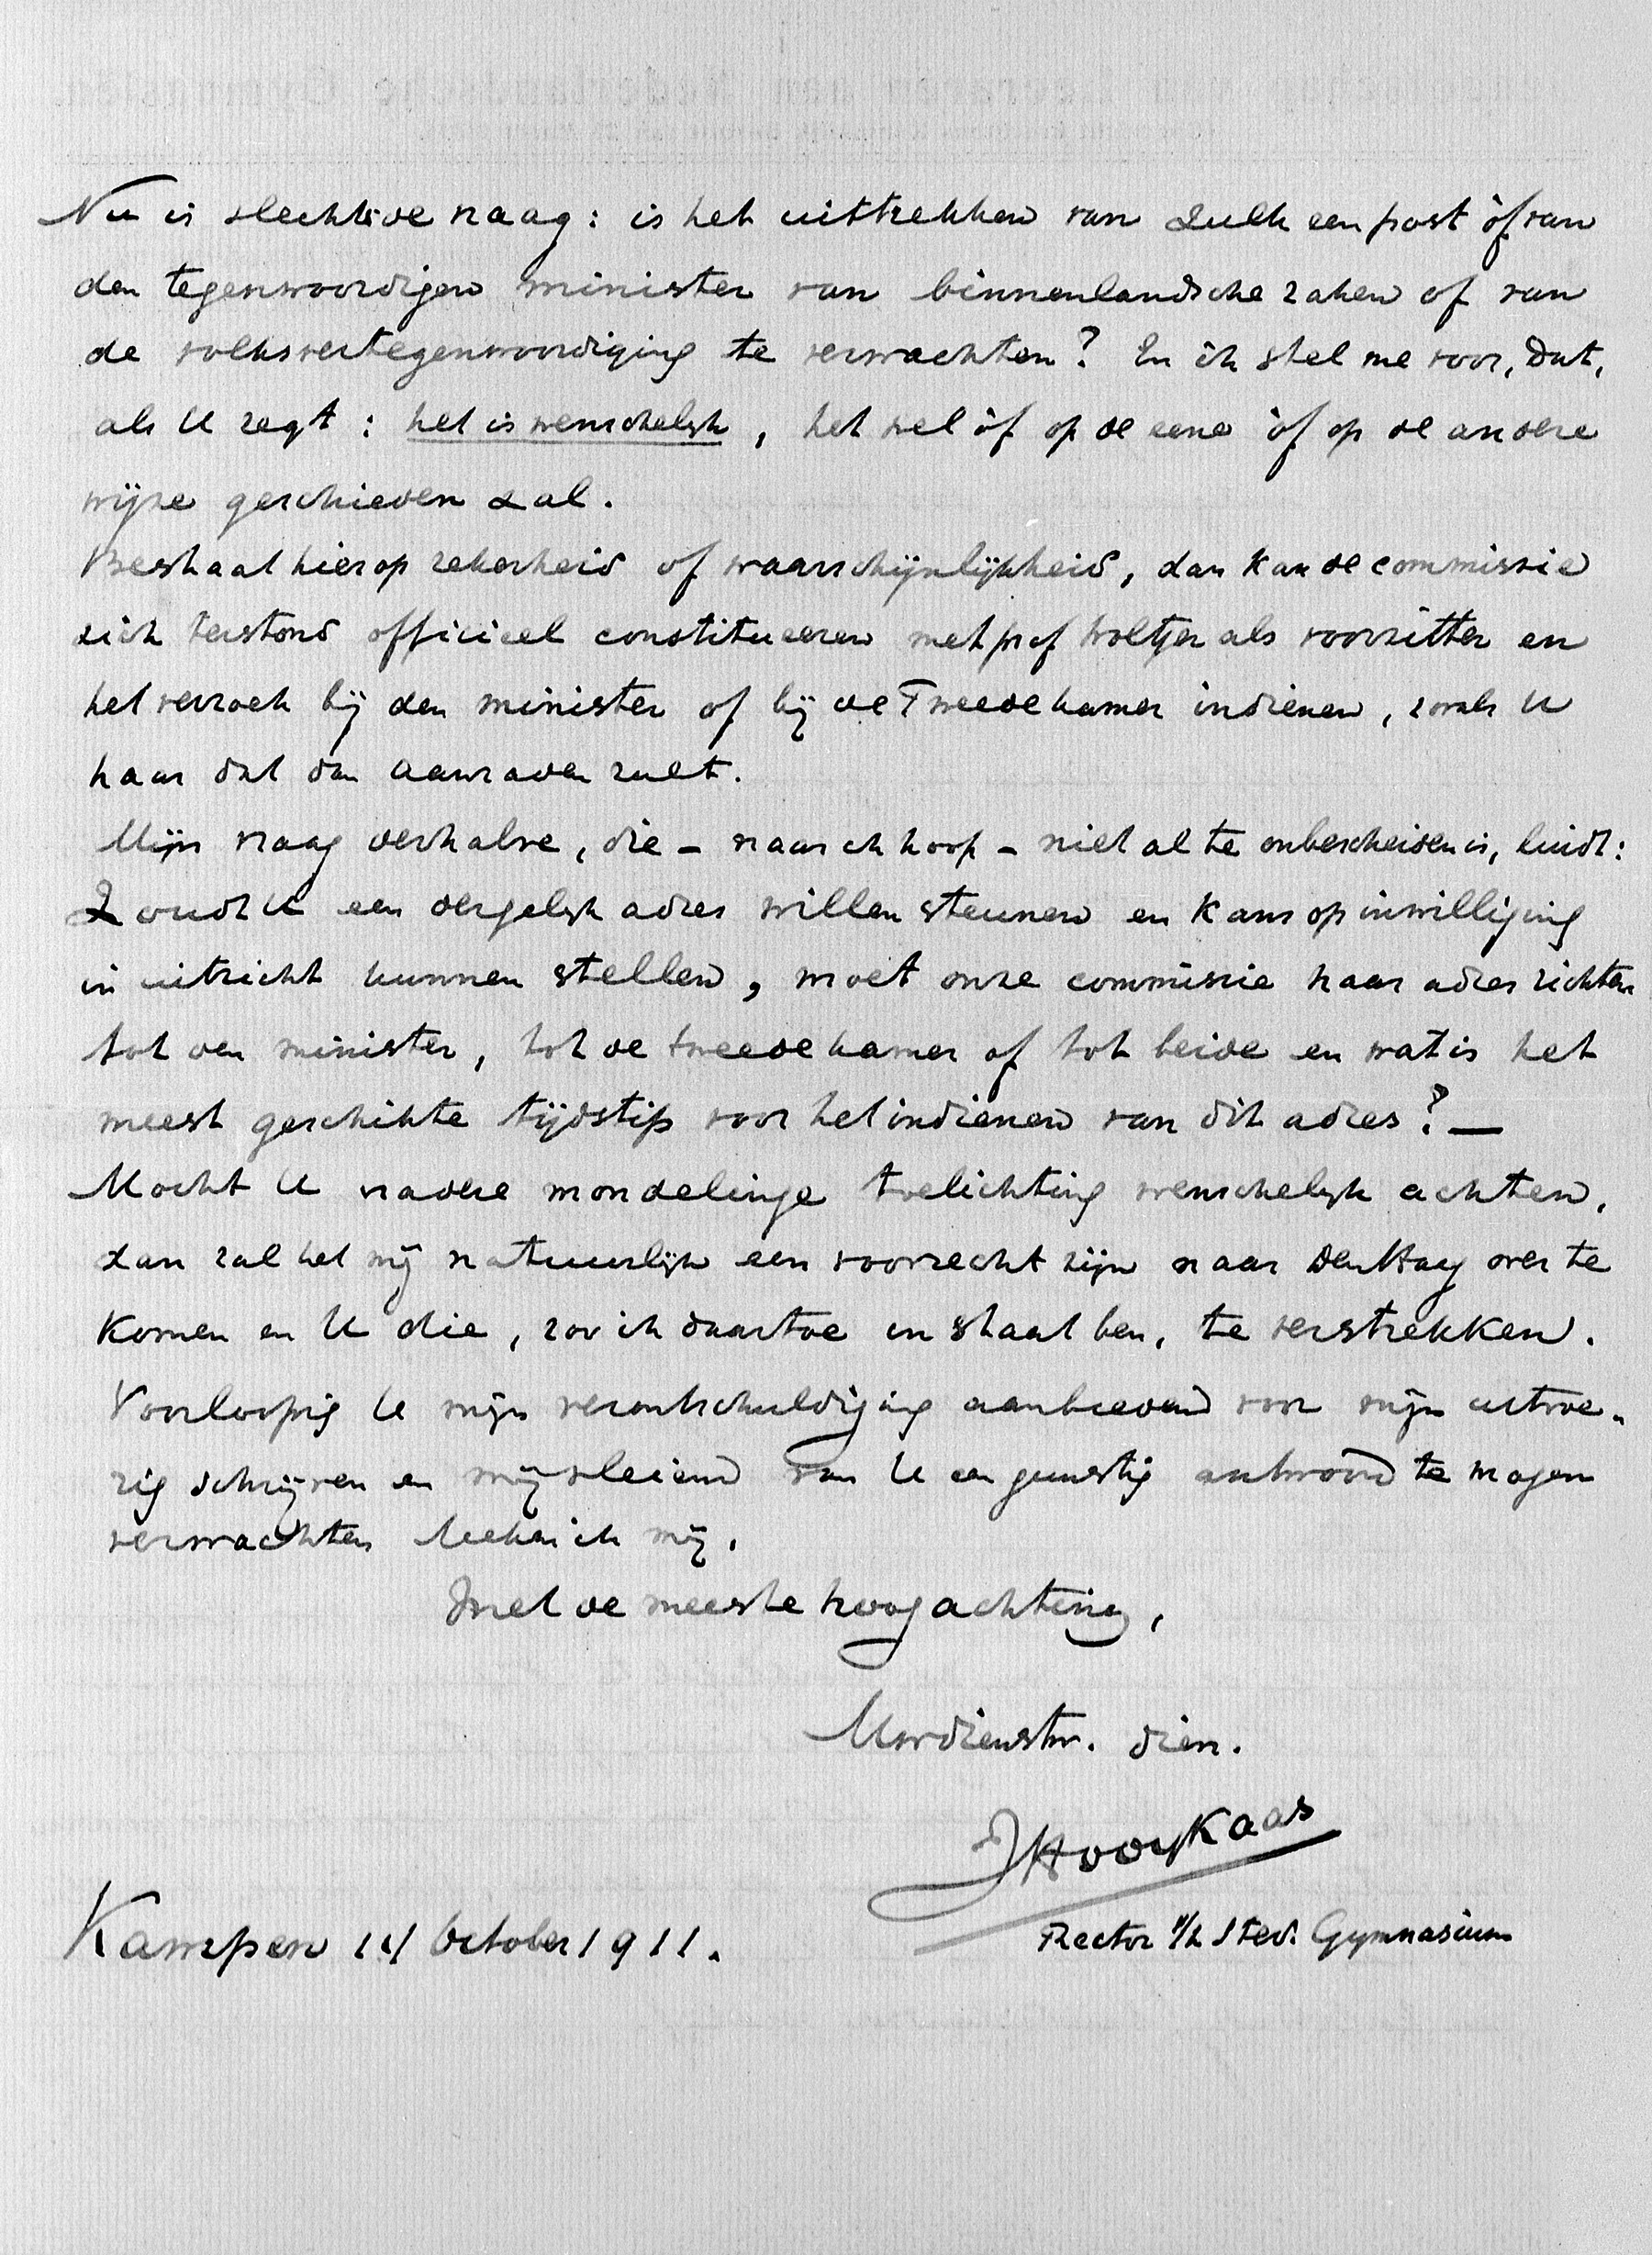 Nu is slechts de vraag: is het uittrekken van zulk een post òf van
den tegenwoordigen minister van binnenlandsche zaken of van
de volksvertegenwoordiging te verwachten? En ik stel me voor, dat,
als U zegt: het is wenschelijk, het wel òf op de eene òf op de andere
wijze geschieden zal.
Bestaat hierop zekerheid of waarschijnlijkheid, dan kan de commissie
zich terstond officieel constitueeren met prof Woltjer als voorzitter en
het verzoek bij den minister of bij de Tweede kamer indienen, zooals U
haar dat dan aanraden zult.
Mijn vraag derhalve, die – naar ik hoop – niet al te onbescheiden is, luidt:
Zoudt U een dergelijk adres willen steunen en kans op inwilliging
in uitzicht kunnen stellen, moet onze commissie haar adres richten
tot den minister, tot de tweede kamer of tot beide en wat is het
meest geschikte tijdstip voor het indienen van dit adres? —
Mocht U nadere mondelinge toelichting wenschelijk achten,
dan zal het mij natuurlijk een voorrecht zijn naar Den Haag over te
komen en U die, zoo ik daartoe in staat ben, te verstrekken.
Voorloopig U mijn verontschuldiging aanbiedend voor mijn uitvoe-
rig schrijven en mij vleiend van U een gunstig antwoord te mogen
verwachten teeken ik mij,
Met de meeste hoogachting,
Uw dienstw. dien.
J Hooykaas
Rector v/h Sted. Gymnasium
Kampen 14 October 1911.